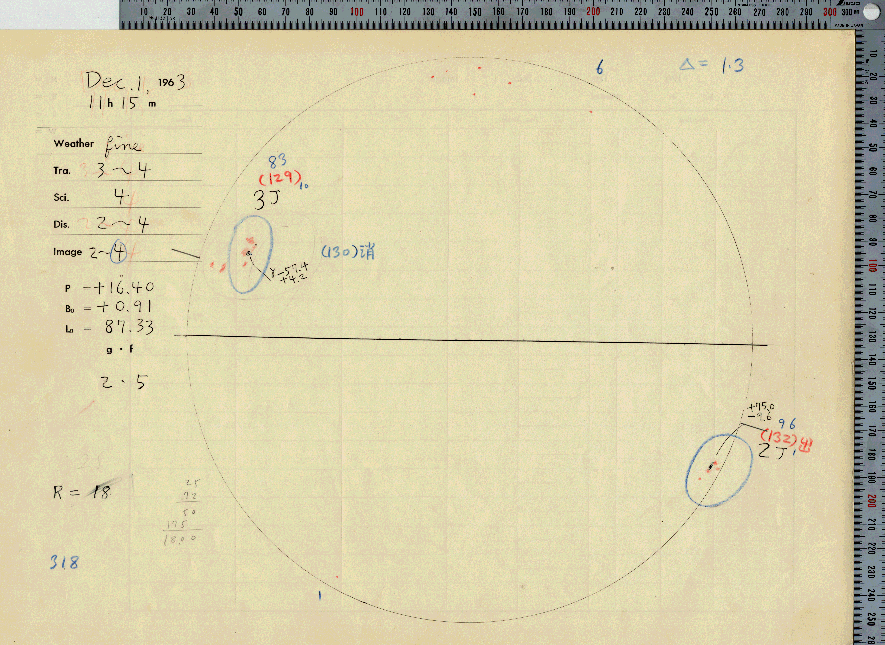 10 20 30 40 50 60 70 80 90 100 110 120 130 140 150 160 170 180 190 200 210 220 230 240 250 260 270 280 290 300
Dec. 1, 1963
11 h 15 m
6
Δ = 1.3
Weather fine
Tra. 3~4
Sci. 4
Dis. 2~4
Image 2~4
P = +16.40
B₀ = +0.91
L₀ = 87.33
g · f
2 · 5
83
(129)
10
3J
(130)消
Y-57.4
+4.2
+75.0
-9.6
96
(132)出
2J
1
R = 18
25
50
175
1800
318
1
10 20 30 40 50 60 70 80 90 100 110 120 130 140 150 160 170 180 190 200 210 220 230 240 250